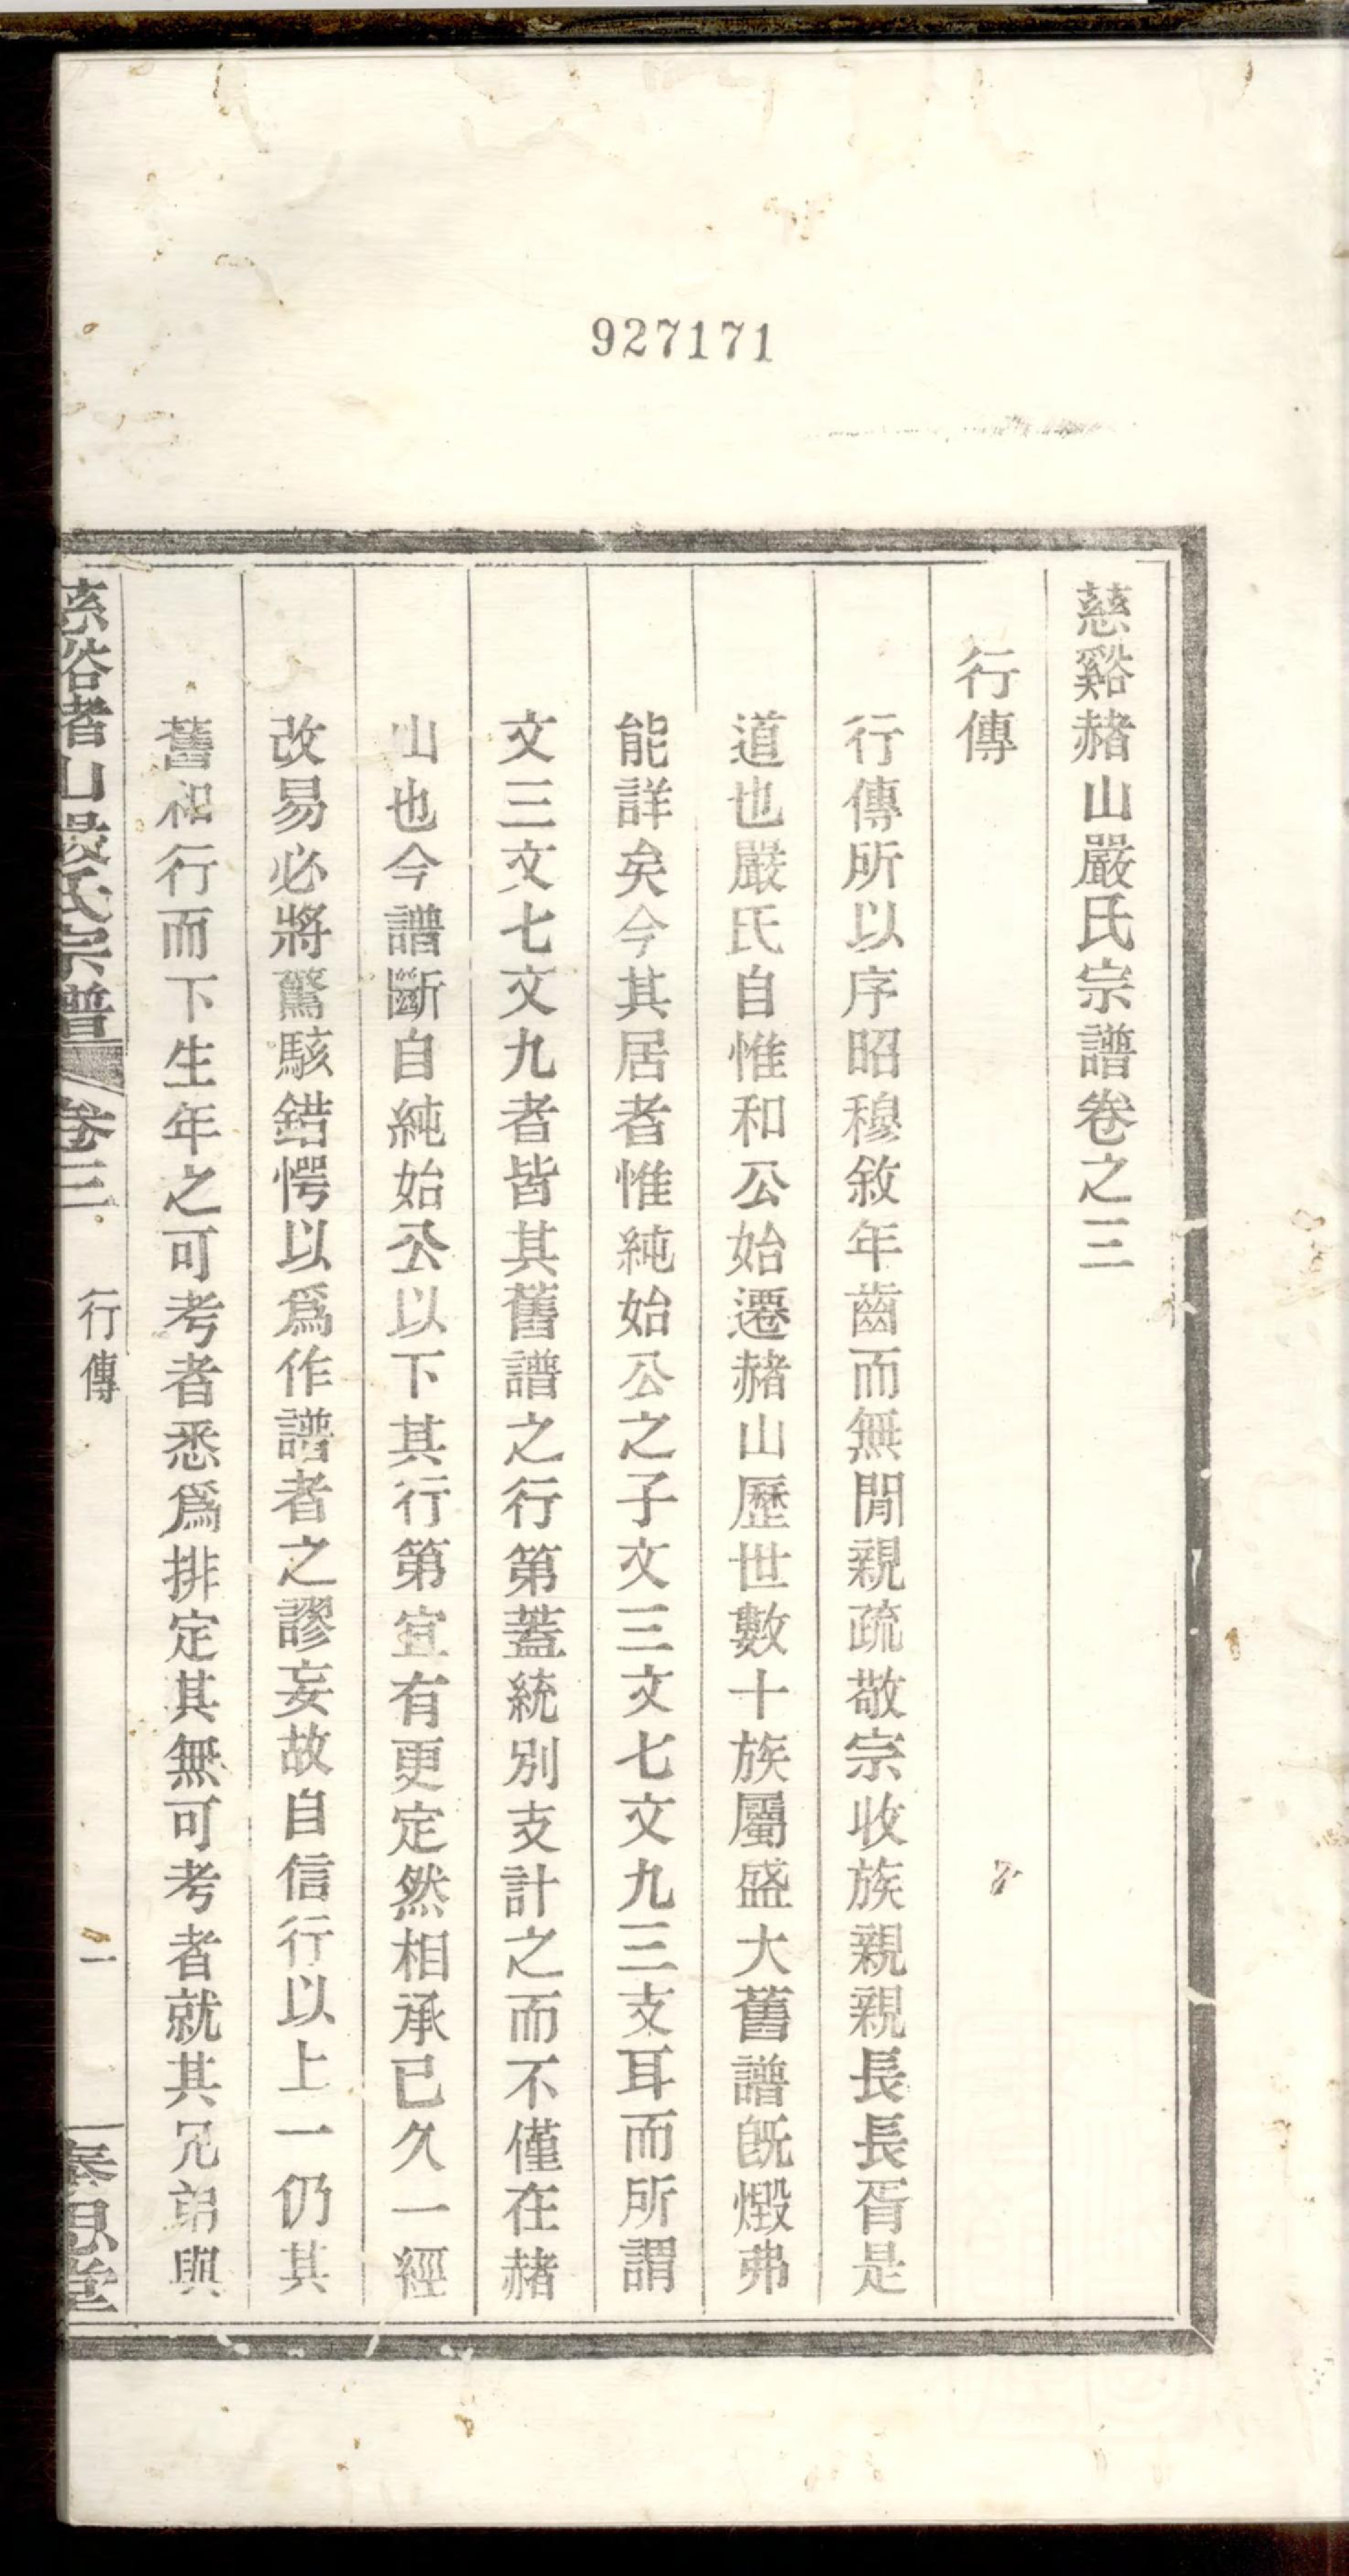 927171
慈谿赭山嚴氏宗譜卷之三
行傳
行傳所以序昭穆敘年齒而無閒親疏敬宗收族親親長長胥是
道也嚴氏自惟和公始遷赭山歷世數十族屬盛大舊譜旣燬弗
能詳矣今其居者惟純始公之子文三文七文九三支耳而所謂
文三文七文九者皆其舊譜之行第蓋統別支計之而不僅在赭
山也今譜斷自純始公以下其行第宜有更定然相承已久一經
改易必將驚駭錯愕以爲作譜者之謬妄故自信行以上一仍其
舊和行而下生年之可考者悉爲排定其無可考者就其兄弟與
慈谿赭山嚴氏宗譜 卷三 行傳 一 奉思堂